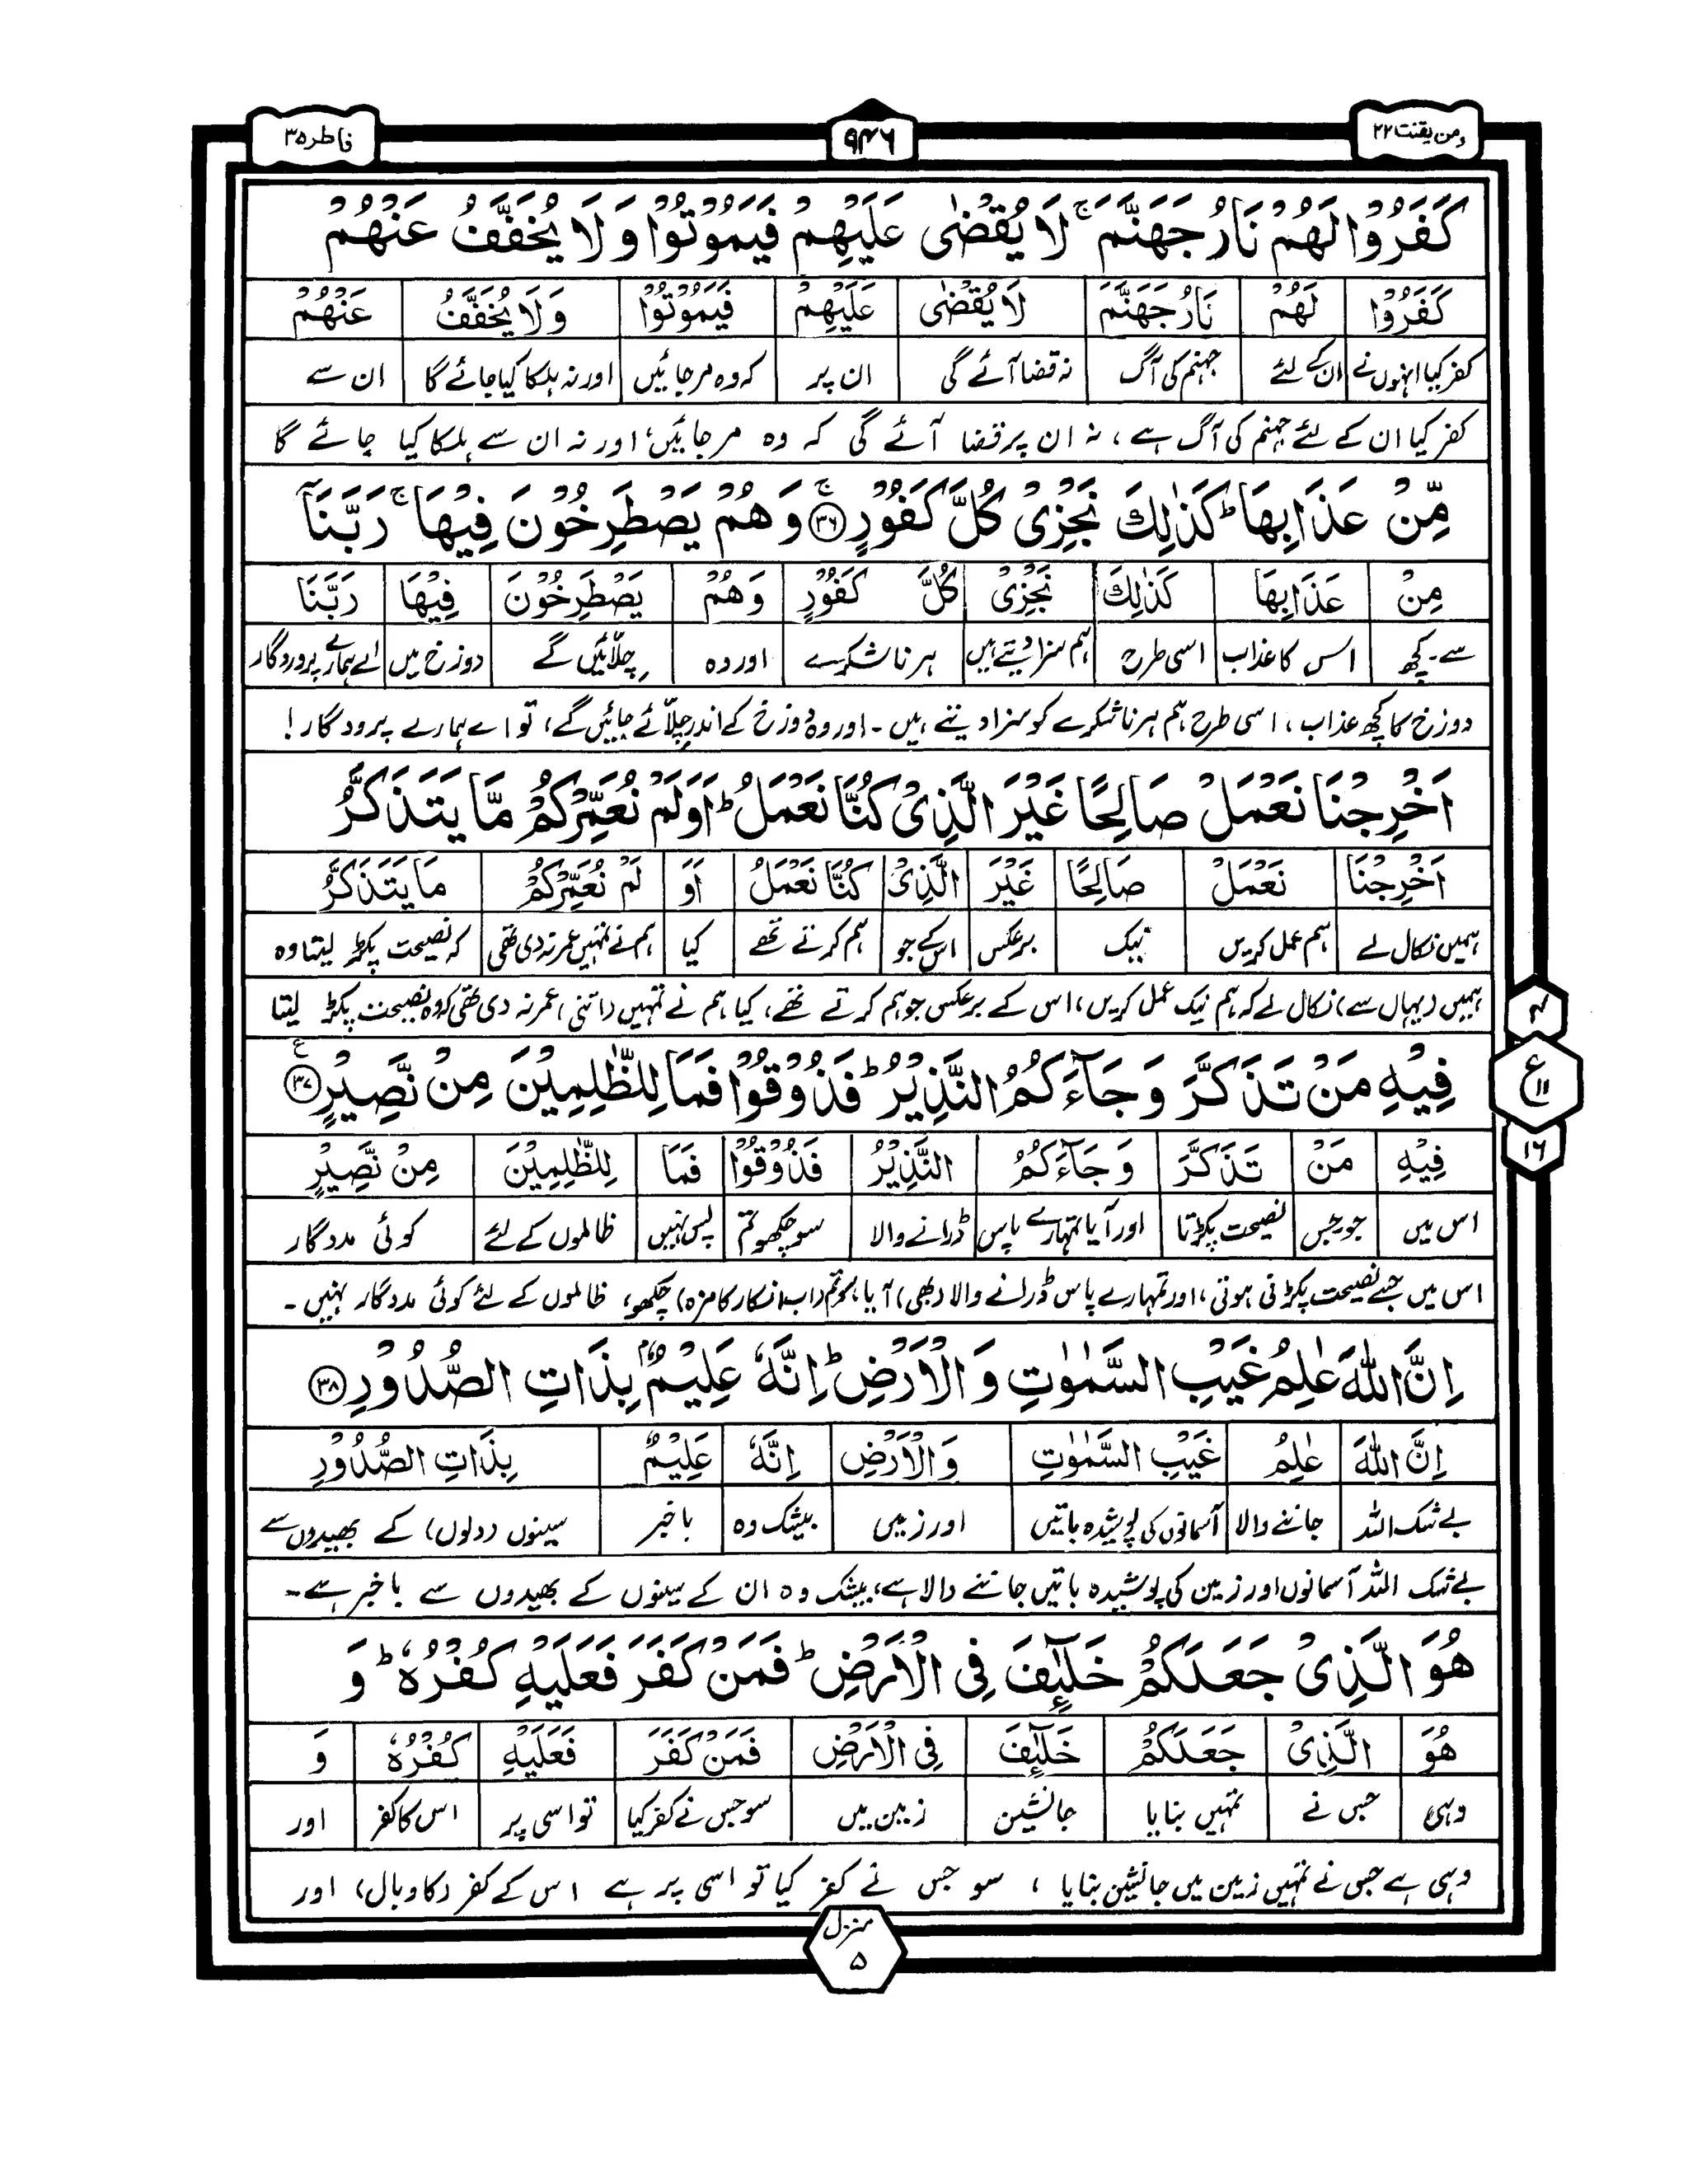 ومن يقنت ۲۲
۹۴۶
فاطر ۳۵
كَفَرُوْا لَهُمْ نَارُ جَهَنَّمَ ۚ لَا يُقْضٰى عَلَيْهِمْ فَيَمُوْتُوْا وَ لَا يُخَفَّفُ عَنْهُمْ
كَفَرُوْا لَهُمْ نَارُ جَهَنَّمَ لَا يُقْضٰى عَلَيْهِمْ فَيَمُوْتُوْا وَلَا يُخَفَّفُ عَنْهُمْ
کفر کیا انہوں نے ان کے لئے جہنم کی آگ نہ قضا آئے گی ان پر کہ وہ مر جائیں اور نہ ہلکا کیا جائے گا ان سے
کفر کیا ان کے لئے جہنم کی آگ ہے، نہ ان پر قضا آئے گی کہ وہ مر جائیں، اور نہ ان سے ہلکا کیا جائے گا
مِّنْ عَذَابِهَا ؕ كَذٰلِكَ نَجْزِىْ كُلَّ كَفُوْرٍ ۚ ﴿۳۶﴾ وَ هُمْ يَصْطَرِخُوْنَ فِيْهَا ۚ رَبَّنَاۤ
مِنْ عَذَابِهَا كَذٰلِكَ نَجْزِىْ كُلَّ كَفُوْرٍ وَهُمْ يَصْطَرِخُوْنَ فِيْهَا رَبَّنَا
سے ۔ کچھ اس کا عذاب اسی طرح ہم سزا دیتے ہیں ہر ناشکرے اور وہ چلّائیں گے دوزخ میں اے ہمارے پروردگار
دوزخ کا کچھ عذاب، اسی طرح ہم ہر ناشکرے کو سزا دیتے ہیں ۔ اور وہ دوزخ کے اندر چلّائے جائیں گے، تو اے ہمارے پرودگار!
اَخْرِجْنَا نَعْمَلْ صَالِحًا غَيْرَ الَّذِىْ كُنَّا نَعْمَلُ ؕ اَوَلَمْ نُعَمِّرْكُمْ مَّا يَتَذَكَّرُ
اَخْرِجْنَا نَعْمَلْ صَالِحًا غَيْرَ الَّذِىْ كُنَّا نَعْمَلُ اَوَ لَمْ نُعَمِّرْكُمْ مَا يَتَذَكَّرُ
ہمیں نکال لے ہم عمل کریں نیک برعکس اسکے جو ہم کرتے تھے کیا ہم نے تمہیں عمر نہ دی تھی کہ نصیحت پکڑ لیتا وہ
ہمیں (یہاں سے) نکال لے کہ ہم نیک عمل کریں، اس کے برعکس جو ہم کرتے تھے، کیا ہم نے تمہیں (اتنی) عمر نہ دی تھی کہ وہ نصیحت پکڑ لیتا
فِيْهِ مَنْ تَذَكَّرَ وَ جَآءَكُمُ النَّذِيْرُ ؕ فَذُوْقُوْا فَمَا لِلظّٰلِمِيْنَ مِنْ نَّصِيْرٍ ﴿۳۷﴾ ع
۴
ع ۱۱
۱۶
فِيْهِ مَنْ تَذَكَّرَ وَ جَآءَكُمُ النَّذِيْرُ فَذُوْقُوْا فَمَا لِلظّٰلِمِيْنَ مِنْ نَّصِيْرٍ
اس میں جو ۔ جس نصیحت پکڑتا اور آیا تمہارے پاس ڈرانے والا سو چکھو تم پس نہیں ظالموں کے لئے کوئی مددگار
اس میں جسے نصیحت پکڑنی ہوتی، اور تمہارے پاس ڈرانے والا (بھی) آیا، سو تم (اب انکار کا مزہ) چکھو، ظالموں کے لئے کوئی مددگار نہیں ۔
اِنَّ اللّٰهَ عٰلِمُ غَيْبِ السَّمٰوٰتِ وَ الْاَرْضِ ؕ اِنَّهٗ عَلِيْمٌۢ بِذَاتِ الصُّدُوْرِ ﴿۳۸﴾
اِنَّ اللّٰهَ عٰلِمُ غَيْبِ السَّمٰوٰتِ وَالْاَرْضِ اِنَّهٗ عَلِيْمٌ بِذَاتِ الصُّدُوْرِ
بےشک اللہ جاننے والا آسمانوں کی پوشیدہ باتیں اور زمین بیشک وہ باخبر سینوں (دلوں) کے بھیدوں سے
بےشک اللہ آسمانوں اور زمین کی پوشیدہ باتیں جاننے والا ہے، بیشک وہ ان کے سینوں کے بھیدوں سے باخبر ہے ۔
هُوَ الَّذِىْ جَعَلَكُمْ خَلٰٓئِفَ فِى الْاَرْضِ ؕ فَمَنْ كَفَرَ فَعَلَيْهِ كُفْرُهٗ ؕ وَ
هُوَ الَّذِىْ جَعَلَكُمْ خَلٰٓئِفَ فِى الْاَرْضِ فَمَنْ كَفَرَ فَعَلَيْهِ كُفْرُهٗ وَ
وہی جس نے تمہیں بنایا جانشین زمین میں سو جس نے کفر کیا تو اسی پر اس کا کفر اور
وہی ہے جس نے تمہیں زمین میں جانشین بنایا، سو جس نے کفر کیا تو اسی پر ہے اس کے کفر (کا وبال) اور
منزل ۵